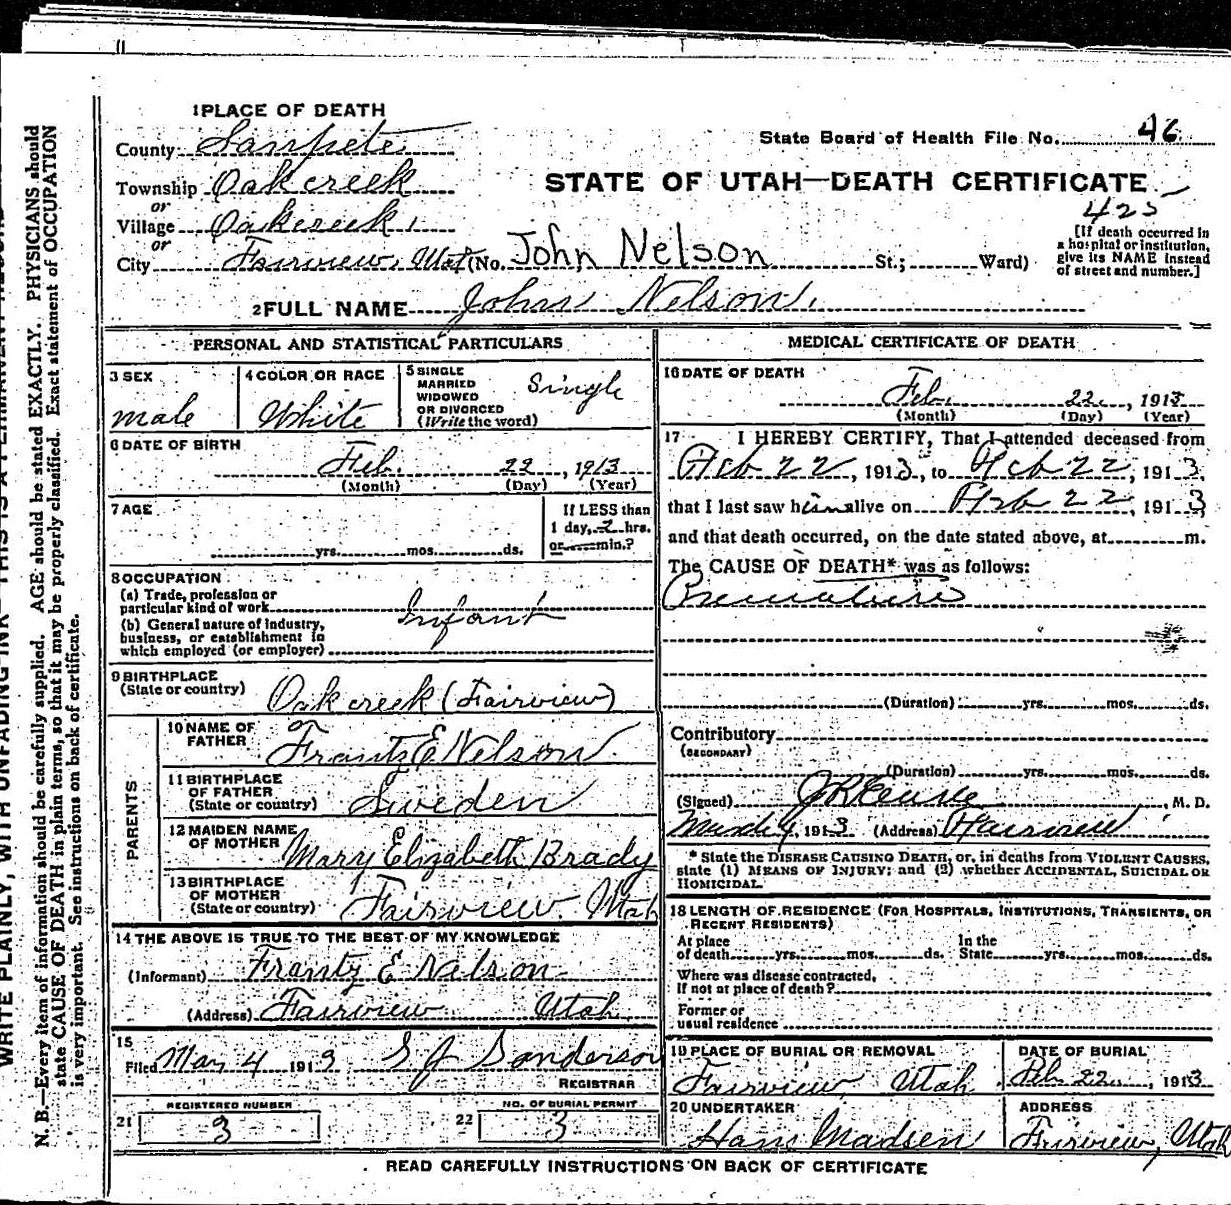 1 PLACE OF DEATH
County Sanpete
State Board of Health File No. 46
Township Oakcreek
STATE OF UTAH—DEATH CERTIFICATE
or
Village Oakcreek
425
or
City Fairview, Utah (No. John Nelson St.; Ward)
[If death occurred in a hospital or institution, give its NAME instead of street and number.]
2 FULL NAME John Nelson.
PERSONAL AND STATISTICAL PARTICULARS
3 SEX
male
4 COLOR OR RACE
White
5 SINGLE
MARRIED
WIDOWED
OR DIVORCED
(Write the word)
Single
6 DATE OF BIRTH
Feb. 22, 1913
(Month) (Day) (Year)
7 AGE
yrs. mos. ds.
If LESS than
1 day, 2 hrs.
or min.?
8 OCCUPATION
(a) Trade, profession or
particular kind of work
Infant
(b) General nature of industry,
business, or establishment in
which employed (or employer)
9 BIRTHPLACE
(State or country) Oak creek (Fairview)
PARENTS
10 NAME OF
FATHER Frantz E Nelson
11 BIRTHPLACE
OF FATHER
(State or country) Sweden
12 MAIDEN NAME
OF MOTHER Mary Elizabeth Brady
13 BIRTHPLACE
OF MOTHER
(State or country) Fairview Utah
14 THE ABOVE IS TRUE TO THE BEST OF MY KNOWLEDGE
(Informant) Frantz E Nelson
(Address) Fairview Utah
15
Filed Mar 4 1913 S J Sanderson
REGISTRAR
REGISTERED NUMBER
21 3
NO. OF BURIAL PERMIT
22 3
MEDICAL CERTIFICATE OF DEATH
16 DATE OF DEATH
Feb. 22, 1913
(Month) (Day) (Year)
17 I HEREBY CERTIFY, That I attended deceased from
Feb 22, 1913, to Feb 22, 1913,
that I last saw him alive on Feb 22, 1913,
and that death occurred, on the date stated above, at m.
The CAUSE OF DEATH* was as follows:
Premature
(Duration) yrs. mos. ds.
Contributory
(SECONDARY)
(Duration) yrs. mos. ds.
(Signed) , M. D.
March 4, 1913 (Address) Fairview
* State the DISEASE CAUSING DEATH, or, in deaths from VIOLENT CAUSES,
state (1) MEANS OF INJURY; and (2) whether ACCIDENTAL, SUICIDAL OR
HOMICIDAL.
18 LENGTH OF RESIDENCE (FOR HOSPITALS, INSTITUTIONS, TRANSIENTS, OR
RECENT RESIDENTS)
At place
of death yrs. mos. ds.
In the
State yrs. mos. ds.
Where was disease contracted,
If not at place of death?
Former or
usual residence
19 PLACE OF BURIAL OR REMOVAL
Fairview, Utah
DATE OF BURIAL
Feb 22, 1913
20 UNDERTAKER
Hans Madsen
ADDRESS
Fairview, Utah
READ CAREFULLY INSTRUCTIONS ON BACK OF CERTIFICATE
N. B.—Every item of information should be carefully supplied. AGE should be stated EXACTLY. PHYSICIANS should
state CAUSE OF DEATH in plain terms, so that it may be properly classified. Exact statement of OCCUPATION
is very important. See instructions on back of certificate.
WRITE PLAINLY, WITH UNFADING INK—THIS IS A PERMANENT RECORD